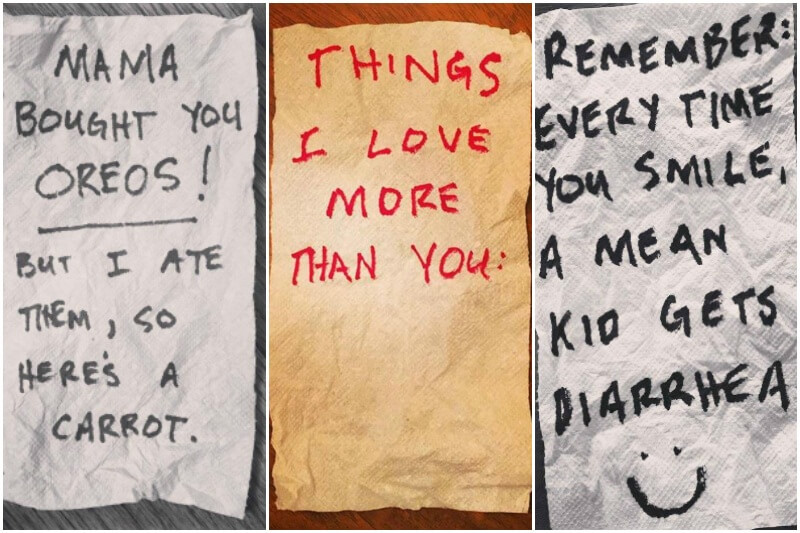 MAMA
BOUGHT YOU
OREOS!
BUT I ATE
THEM, SO
HERE'S A
CARROT.
THINGS
I LOVE
MORE
THAN YOU:
REMEMBER:
EVERY TIME
YOU SMILE,
A MEAN
KID GETS
DIARRHEA